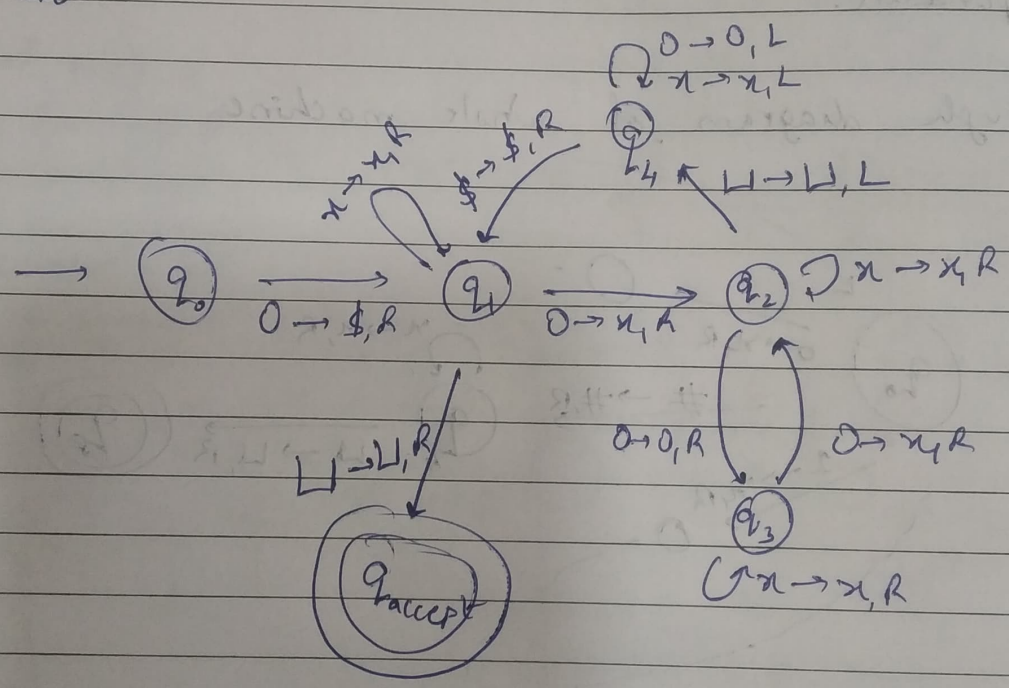 0 → 0, L
x → x, L
q4
x → x, R
$ → $, R
⊔ → ⊔, L
q0
0 → $, R
q1
0 → x, R
q2
x → x, R
0 → 0, R
0 → x, R
⊔ → ⊔, R
q3
x → x, R
qaccept